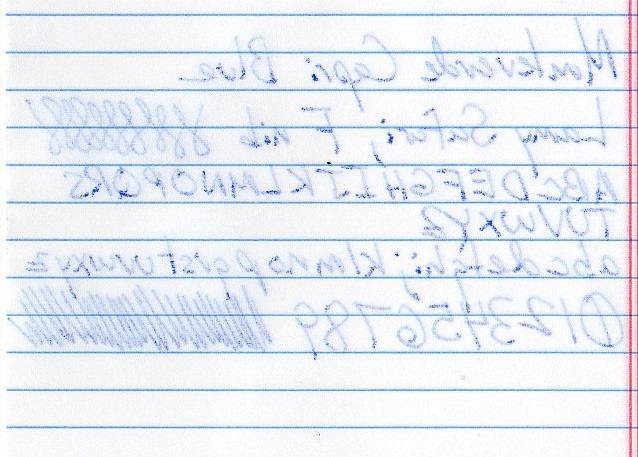 Monteverde Capri Blue
Lamy Safari, F nib
ABCDEFGHIJKLMNOPQRS
TUVWXYZ
abcdefghijklmnopqrstuvwxyz
0123456789